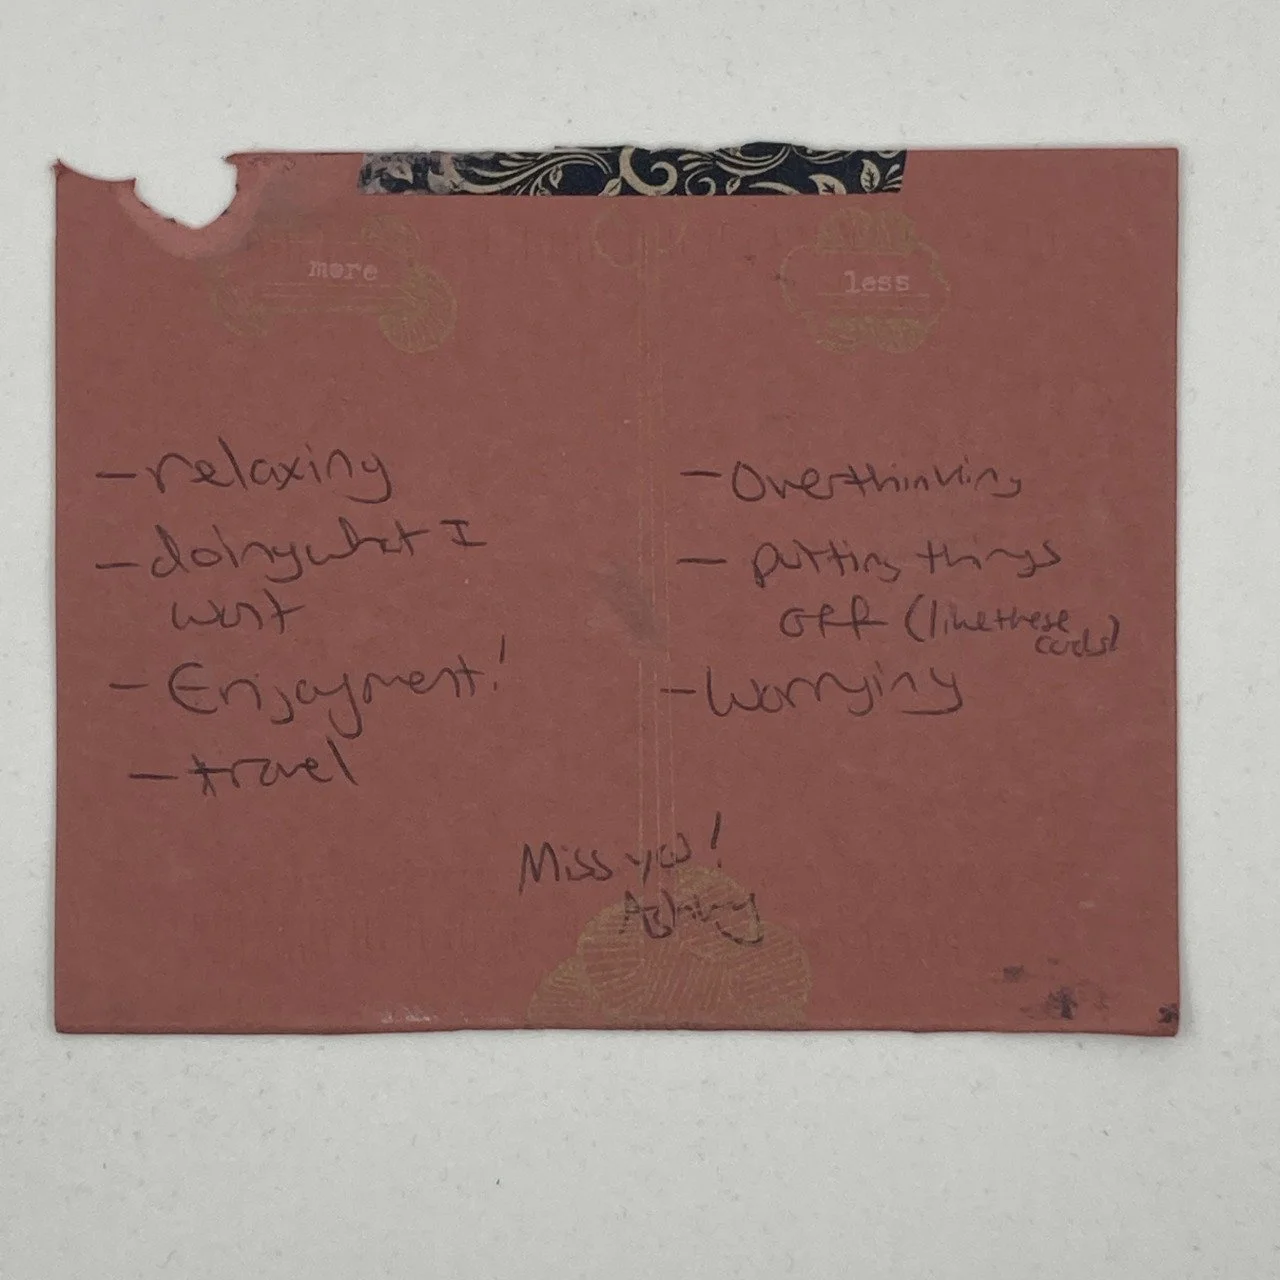 more
- relaxing
- doing what I
want
- Enjoyment!
- travel
less
- Overthinking
- putting things
off (like these
cards)
- Worrying
Miss you!
Ashley